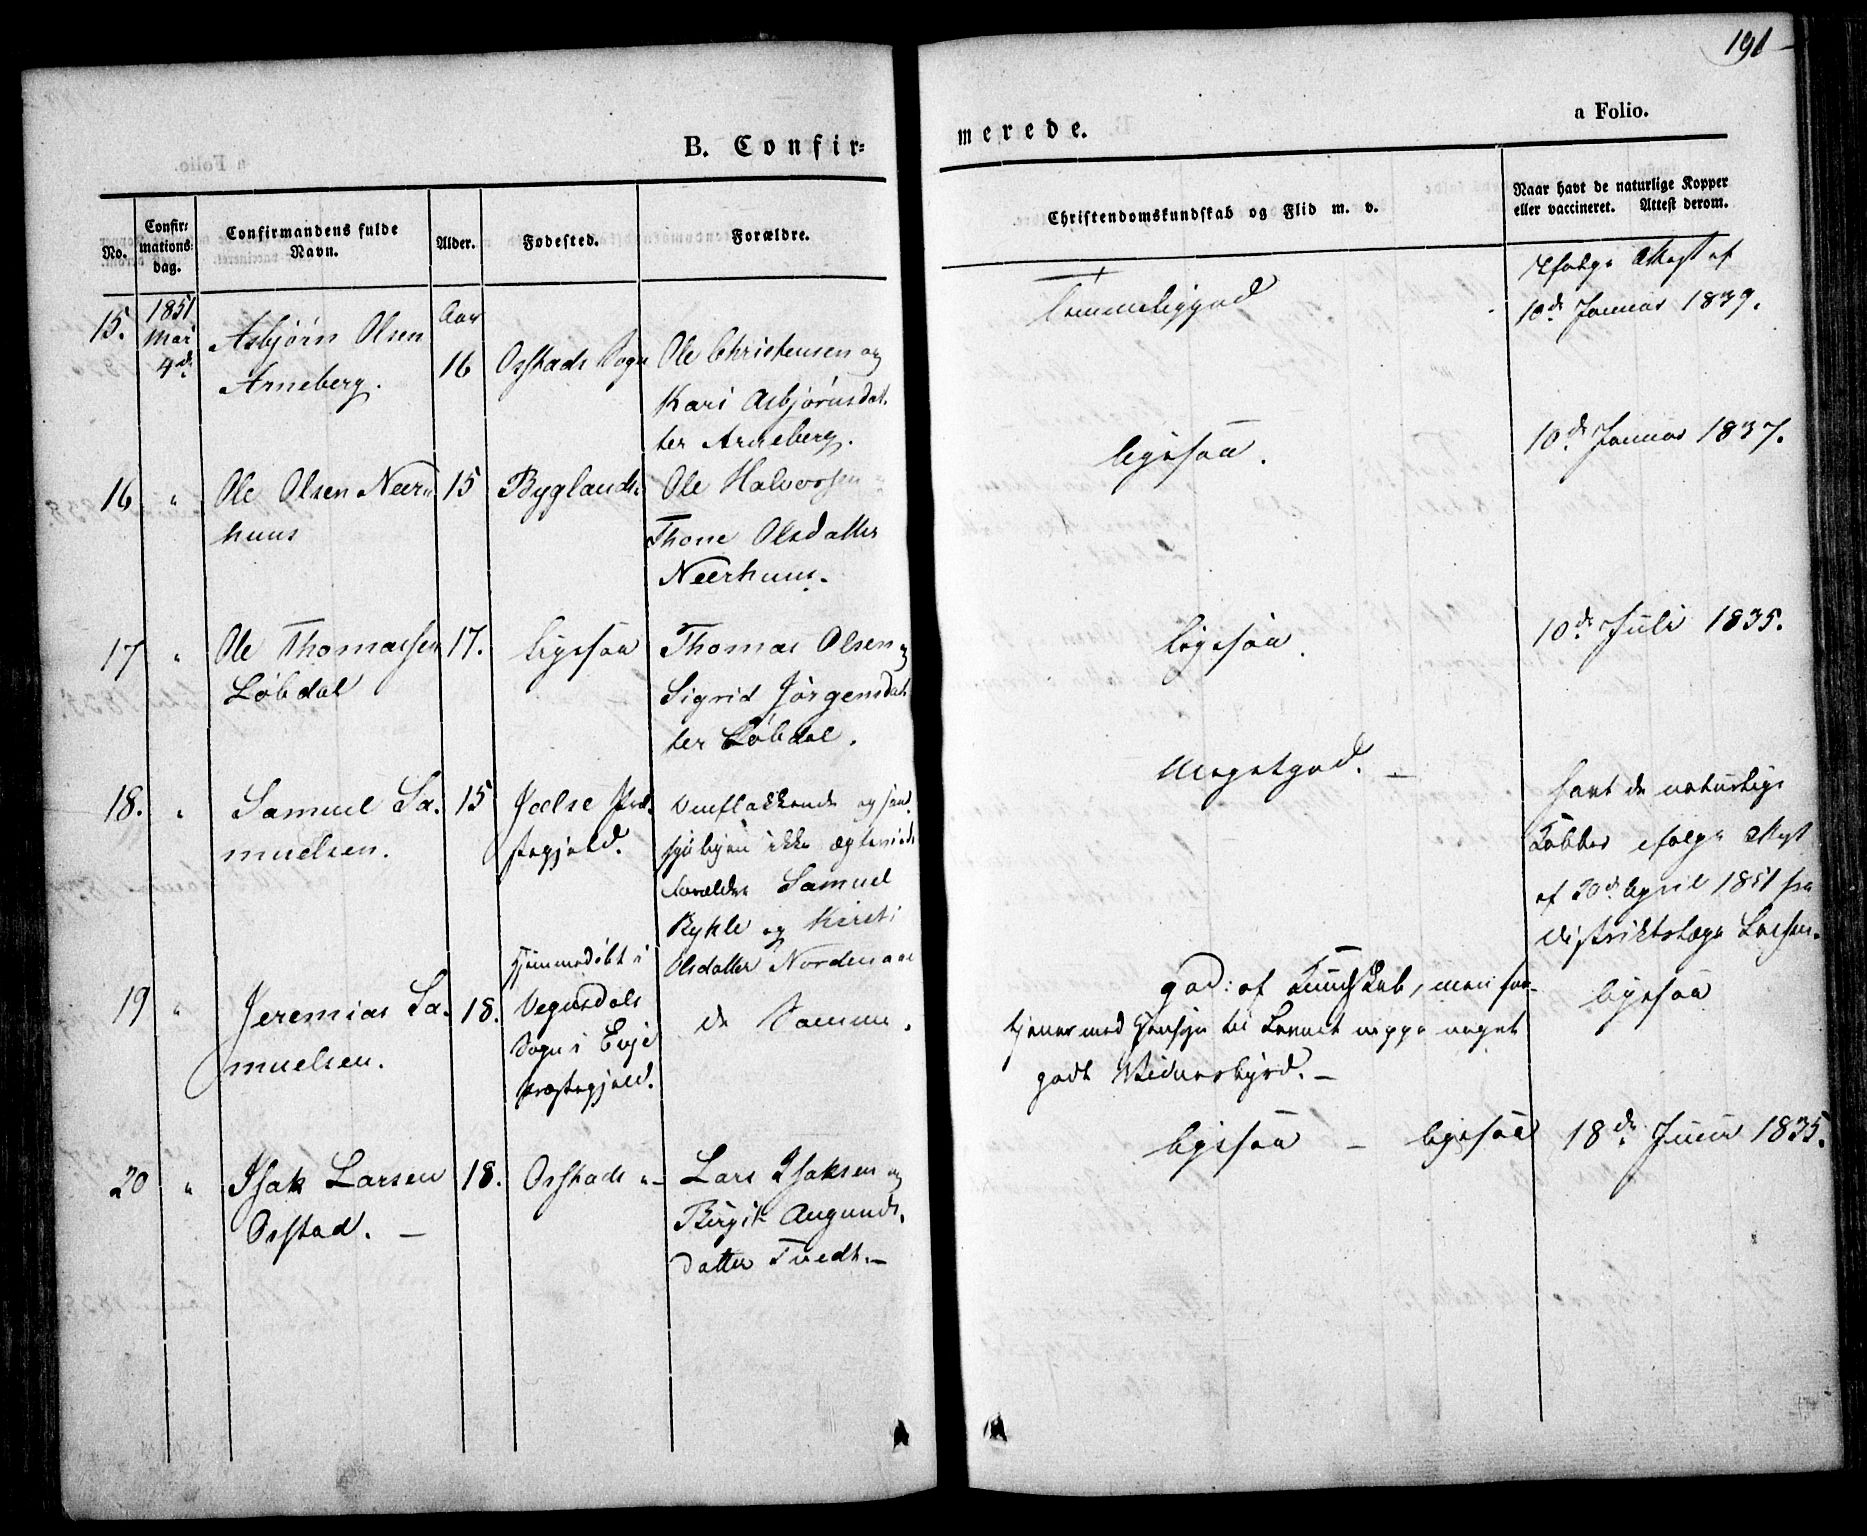 191
a Folio.
B. Confir-
merede.
No.
Confir-
mations-
dag.
Confirmandens fulde
Navn.
Alder.
Fødested.
Forældre.
Christendomskundskab og Flid m. v.
Naar havt de naturlige Kopper
eller vaccineret. Attest derom.
15. 1851 Mai 4de
Asbjørn Olsen
Arneberg.
Aar
16
Osstads Sogn
Ole Christensen og
Kari Asbjørnsdat-
ter Arneberg.
Temmeliggod
Ifølge Attest af
10de Januar 1839.
16 "
Ole Olsen Neer-
huus
15
Byglands
Ole Halvorsen
Thone Olsdatter
Neerhuus.
ligesaa.
10de Januar 1837.
17 "
Ole Thomassen
Løbdal
17.
ligesaa
Thomas Olsen og
Sigrid Jørgensdat-
ter Løbdal.
ligesaa.
10de Juli 1835.
18. "
Samuel Sa-
muelsen.
15
Jælse Præ-
stegjeld.
Omflakkende og
ikke ægteviede
Forældre Samuel
Bykle og Kirsti
Olsdatter Nordenaae
Megetgod. —
havt de naturlige
Kopper ifølge Attest
af 30de April 1851 fra
Districtslæge
19 "
Jeremias Sa-
muelsen.
18.
Hjemmedøbt i
Vegusdals
Sogn i Evje
Præstegjeld.
de Samme.
god: af Kundskab, men for-
tjener med Hensyn til Levnet neppe noget
godt Vidnesbyrd. —
ligesaa
20 "
Isak Larsen
Osstad. —
18.
Osstads "—
Lars Isaksen og
Birgit Augunds-
datter Tvedt. —
ligesaa — ligesaa
18de Juni 1835.